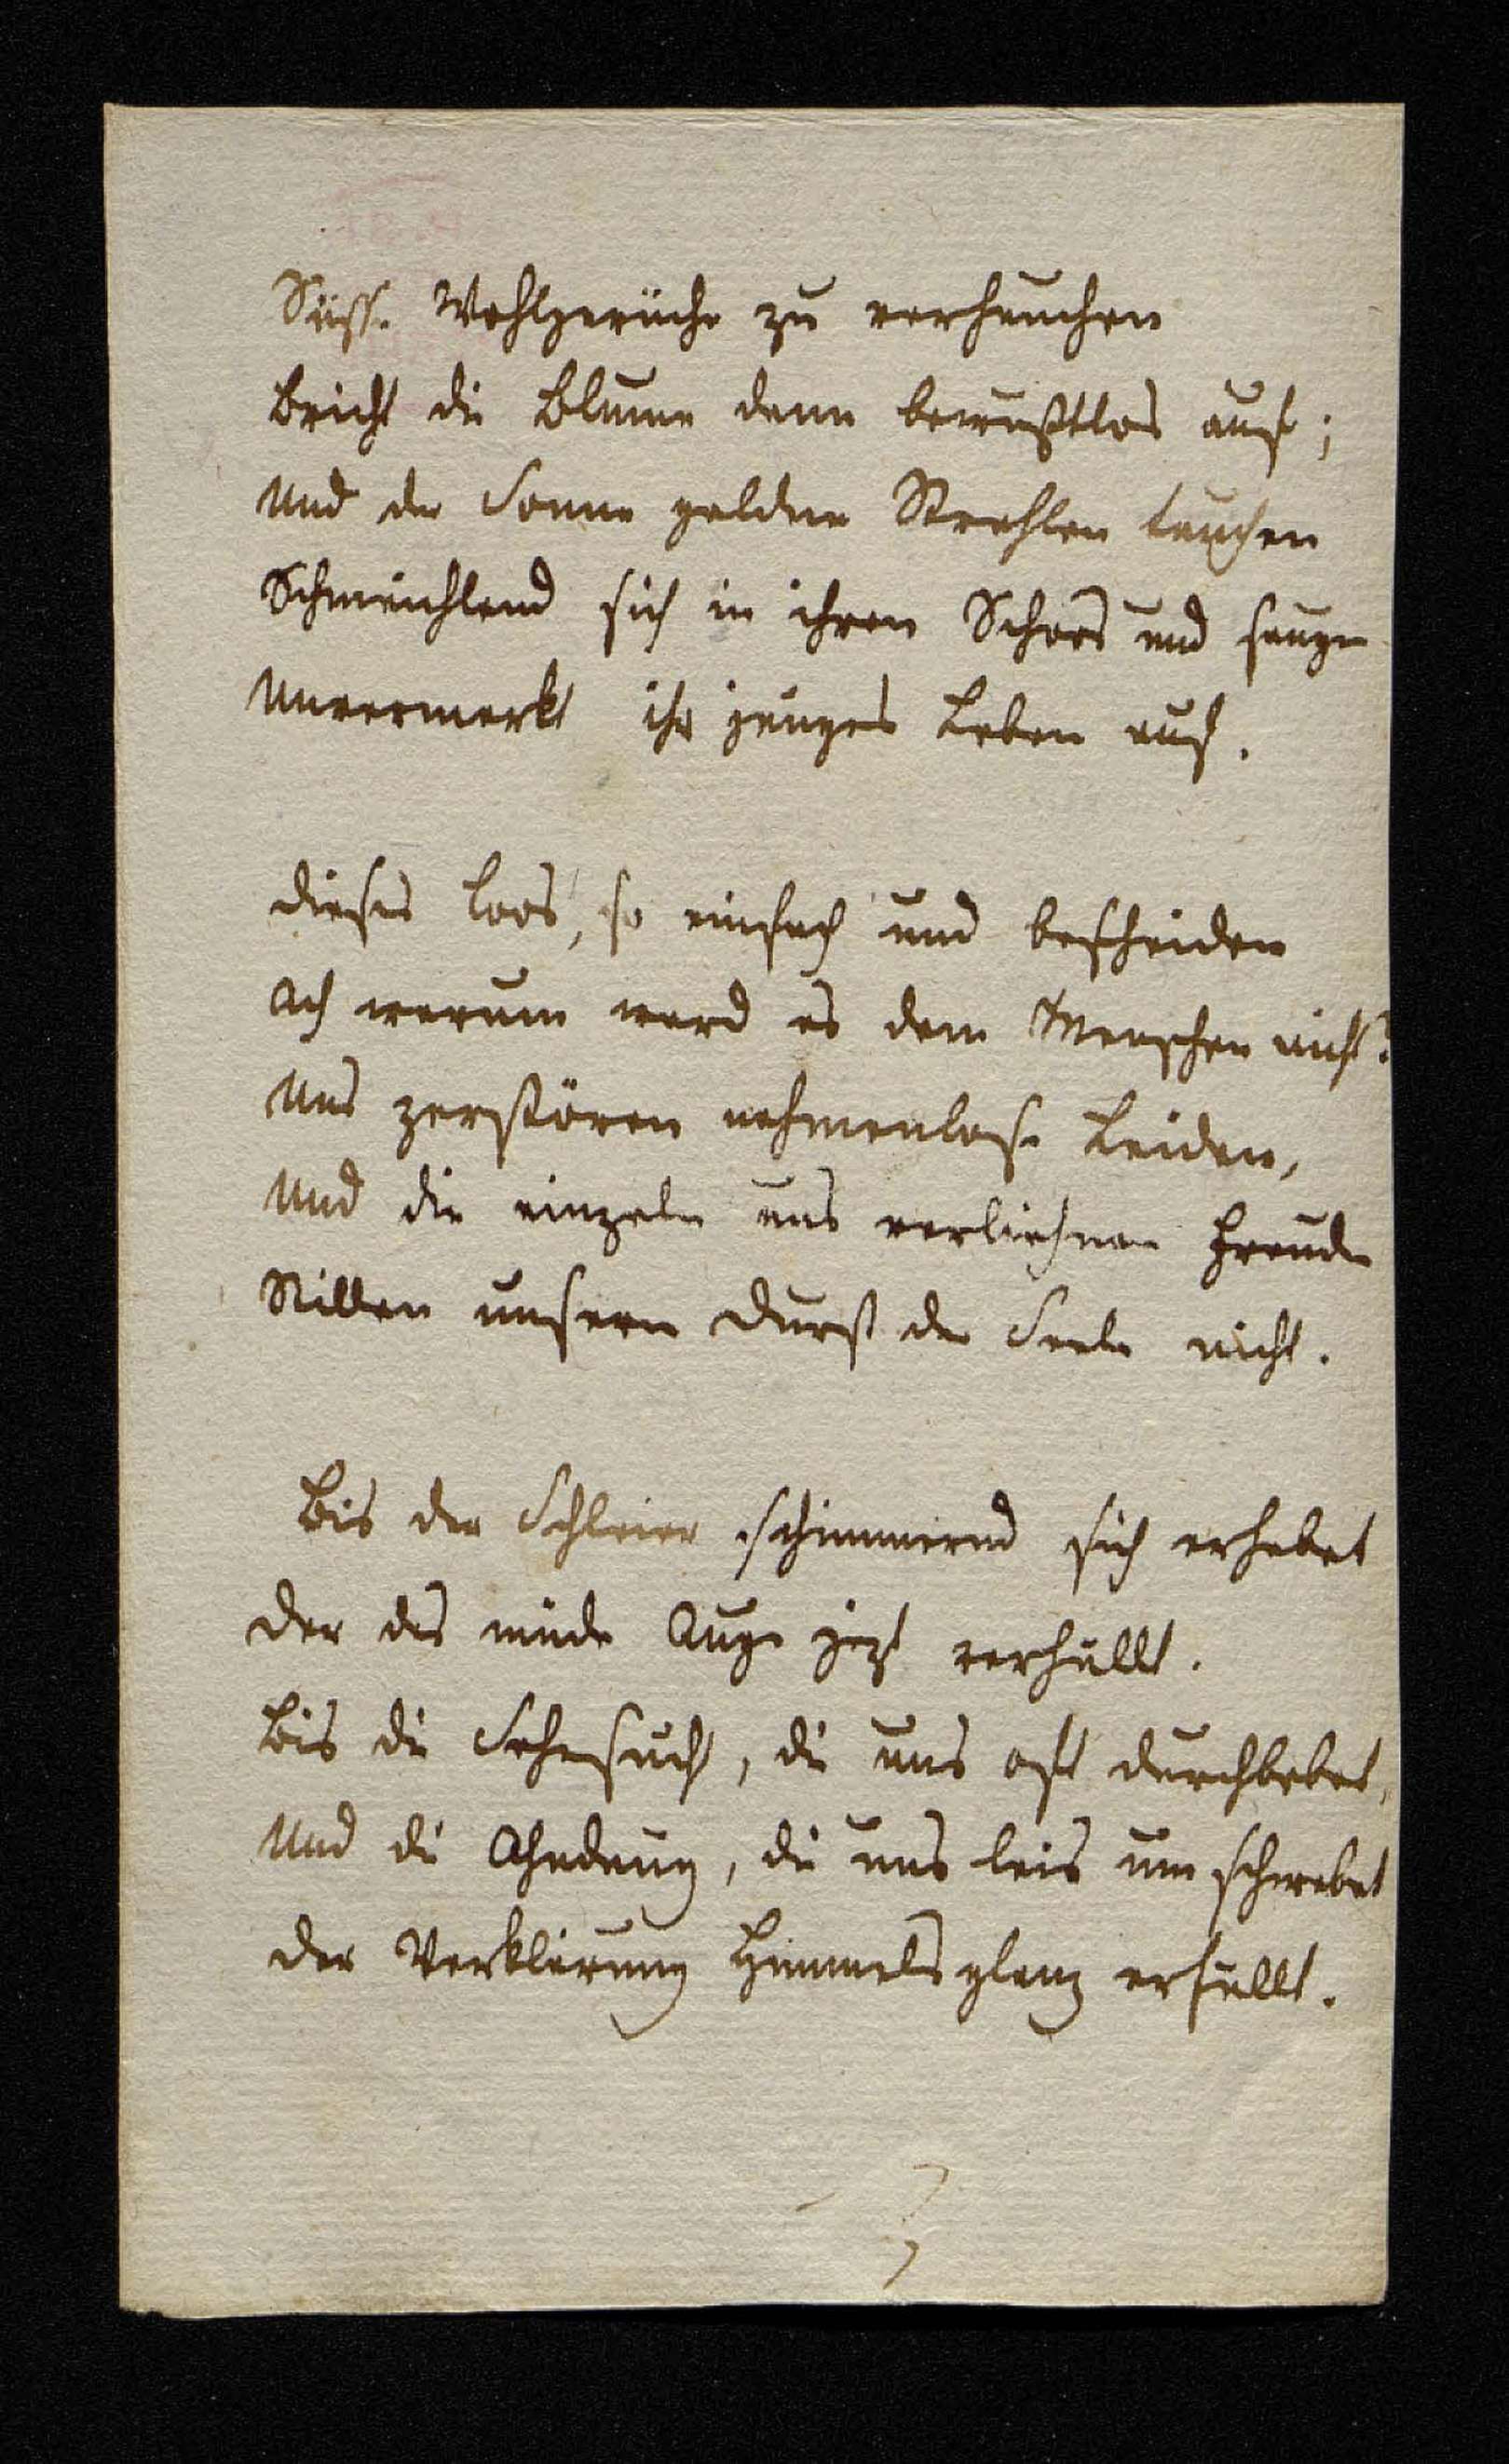 Süsse Wohlgerüche zu verhauchen
Bricht die Blume dann bewußtlos auf;
Und der Sonne goldne Strahlen tauchen
Schmeichlend sich in ihren Schoos und saugen
Unvermerkt ihr junges Leben auf.
Dieses Loos, so einfach und bescheiden
Ach warum ward es dem Menschen nicht?
Uns zerstören nahmenlose Leiden,
Und die einzeln uns verliehnen Freuden
Stillen unsern Durst der Seele nicht.
Bis der Schleier schimmernd sich erhebet
Der das müde Auge jezt verhüllt.
Bis die Sehnsucht, die uns oft durchbebet,
Und die Ahndung, die uns leis umschwebet
Der Verklärung Himmelsglanz erfüllt.